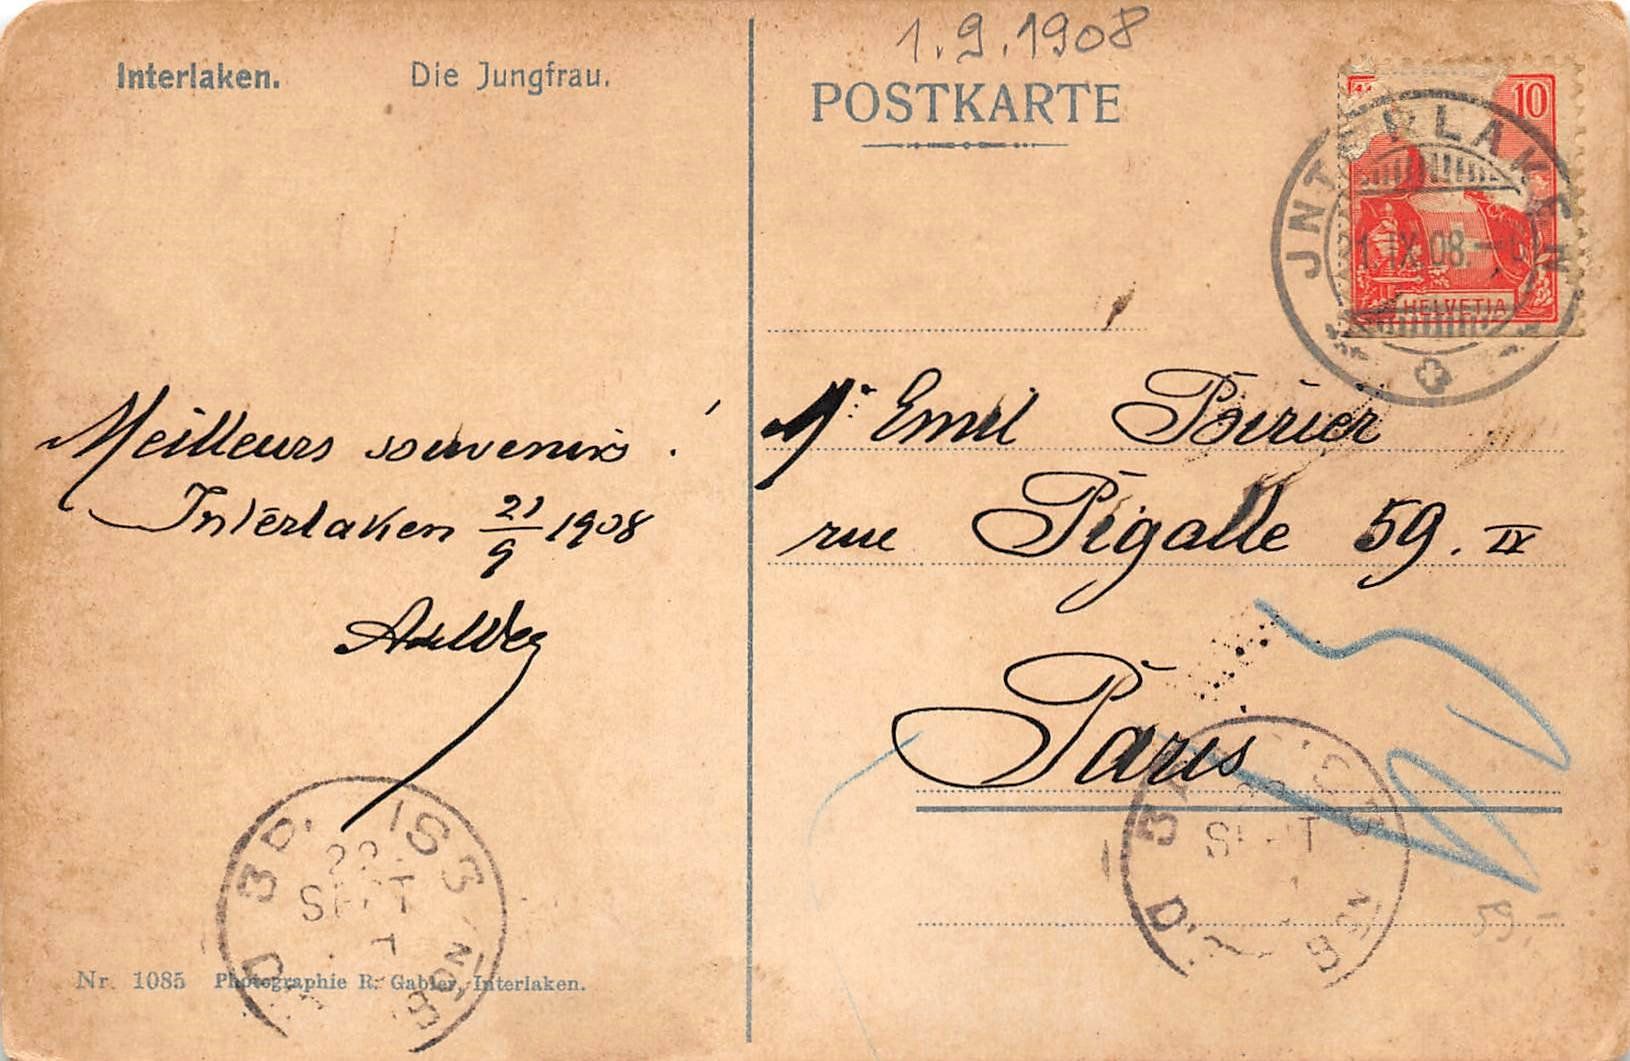 1.9.1908
Interlaken. Die Jungfrau.
POSTKARTE
10
JNTERLAKEN
1.IX.08.
HELVETIA
Meilleurs souvenirs !
Interlaken 21/9 1908
Mr Emil Poirier
rue Pigalle 59. IX
Paris
22
SEPT
SEPT
Nr. 1085 Photographie R. Gabler, Interlaken.